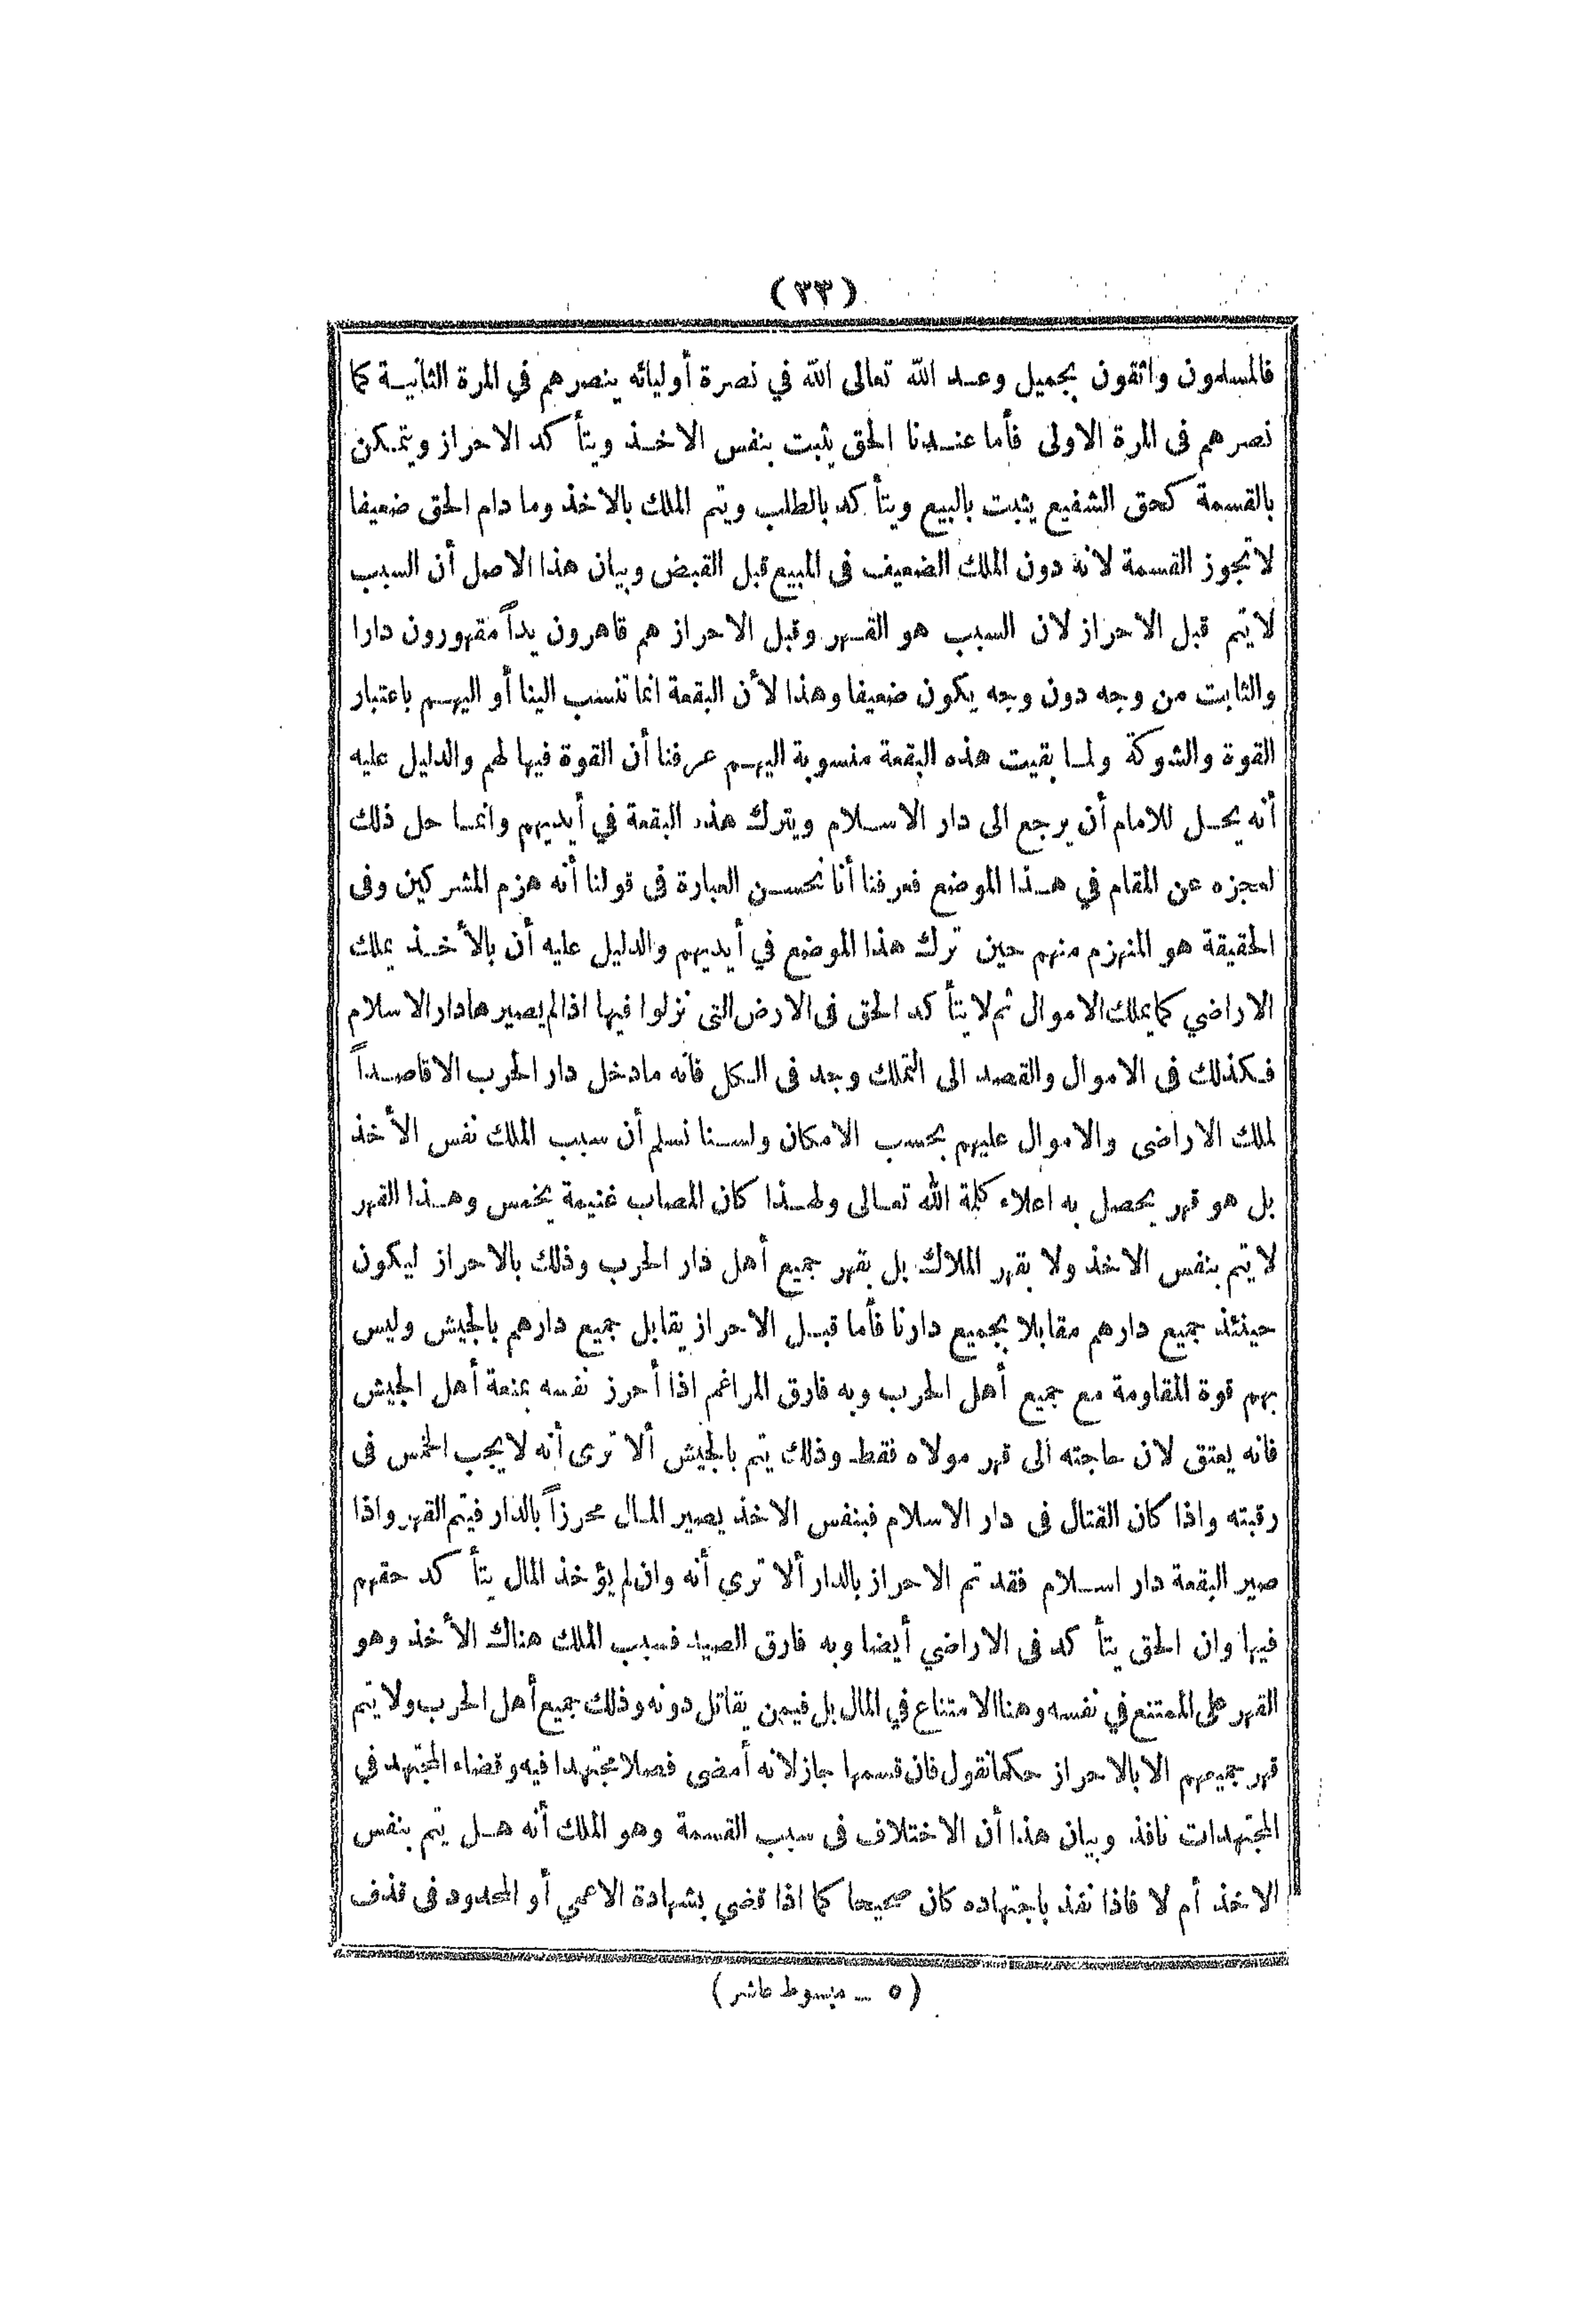 (٣٣)
فالمسلمون واثقون بجميل وعد الله تعالى الله في نصرة أوليائه ينصرهم في المرة الثانية كما
نصرهم فى المرة الاولى فأما عندنا الحق يثبت بنفس الاخذ ويتأكد الاحراز ويتمكن
بالقسمة كحق الشفيع يثبت بالبيع ويتأكد بالطلب ويتم الملك بالاخذ وما دام الحق ضعيفا
لا تجوز القسمة لانه دون الملك الضعيف فى المبيع قبل القبض وبيان هذا الاصل أن السبب
لا يتم قبل الاحراز لان السبب هو القهر وقبل الاحراز هم قاهرون يداً مقهورون دارا
والثابت من وجه دون وجه يكون ضعيفا وهذا لأن البقعة انما تنسب الينا أو اليهم باعتبار
القوة والشوكة ولما بقيت هذه البقعة منسوبة اليهم عرفنا أن القوة فيها لهم والدليل عليه
أنه يحل للامام أن يرجع الى دار الاسلام ويترك هذه البقعة في أيديهم وانما حل ذلك
لعجزه عن المقام في هذا الموضع فعرفنا أنا نحسن العبارة فى قولنا أنه هزم المشركين وفى
الحقيقة هو المنهزم منهم حين ترك هذا الموضع في أيديهم والدليل عليه أن بالأخذ يملك
الاراضي كما يملك الاموال ثم لا يتأكد الحق فى الارض التى نزلوا فيها اذا لم يصيرها دار الاسلام
فكذلك فى الاموال والقصد الى التملك وجد فى الكل فانه ما دخل دار الحرب الا قاصداً
لملك الاراضى والاموال عليهم بحسب الامكان ولسنا نسلم أن سبب الملك نفس الأخذ
بل هو قهر يحصل به اعلاء كلمة الله تعالى ولهذا كان المصاب غنيمة يخمس وهذا القهر
لا يتم بنفس الاخذ ولا بقهر الملاك بل بقهر جميع أهل دار الحرب وذلك بالاحراز ليكون
حينئذ جميع دارهم مقابلا بجميع دارنا فأما قبل الاحراز يقابل جميع دارهم بالجيش وليس
بهم قوة المقاومة مع جميع أهل الحرب وبه فارق المراغم اذا أحرز نفسه بمنعة أهل الجيش
فانه يعتق لان حاجته الى قهر مولاه فقط وذلك يتم بالجيش ألا ترى أنه لا يجب الخمس فى
رقبته واذا كان القتال فى دار الاسلام فبنفس الاخذ يصير المال محرزاً بالدار فيتم القهر واذا
صير البقعة دار اسلام فقد تم الاحراز بالدار ألا تري أنه وان لم يؤخذ المال يتأكد حقهم
فيها وان الحق يتأكد فى الاراضي أيضا وبه فارق الصيد فسبب الملك هناك الأخذ وهو
القهر على الممتنع في نفسه وهنا الامتناع في المال بل فيمن يقاتل دونه وذلك جميع أهل الحرب ولا يتم
قهر جميعهم الا بالاحراز حكما نقول فان قسمها جاز لانه أمضى فصلا مجتهدا فيه وقضاء المجتهد في
المجتهدات نافذ وبيان هذا أن الاختلاف فى سبب القسمة وهو الملك أنه هل يتم بنفس
الاخذ أم لا فاذا نفذ باجتهاده كان صحيحا كما اذا قضي بشهادة الاعمى أو المحدود فى قذف
(٥ ــ مبسوط عاشر)